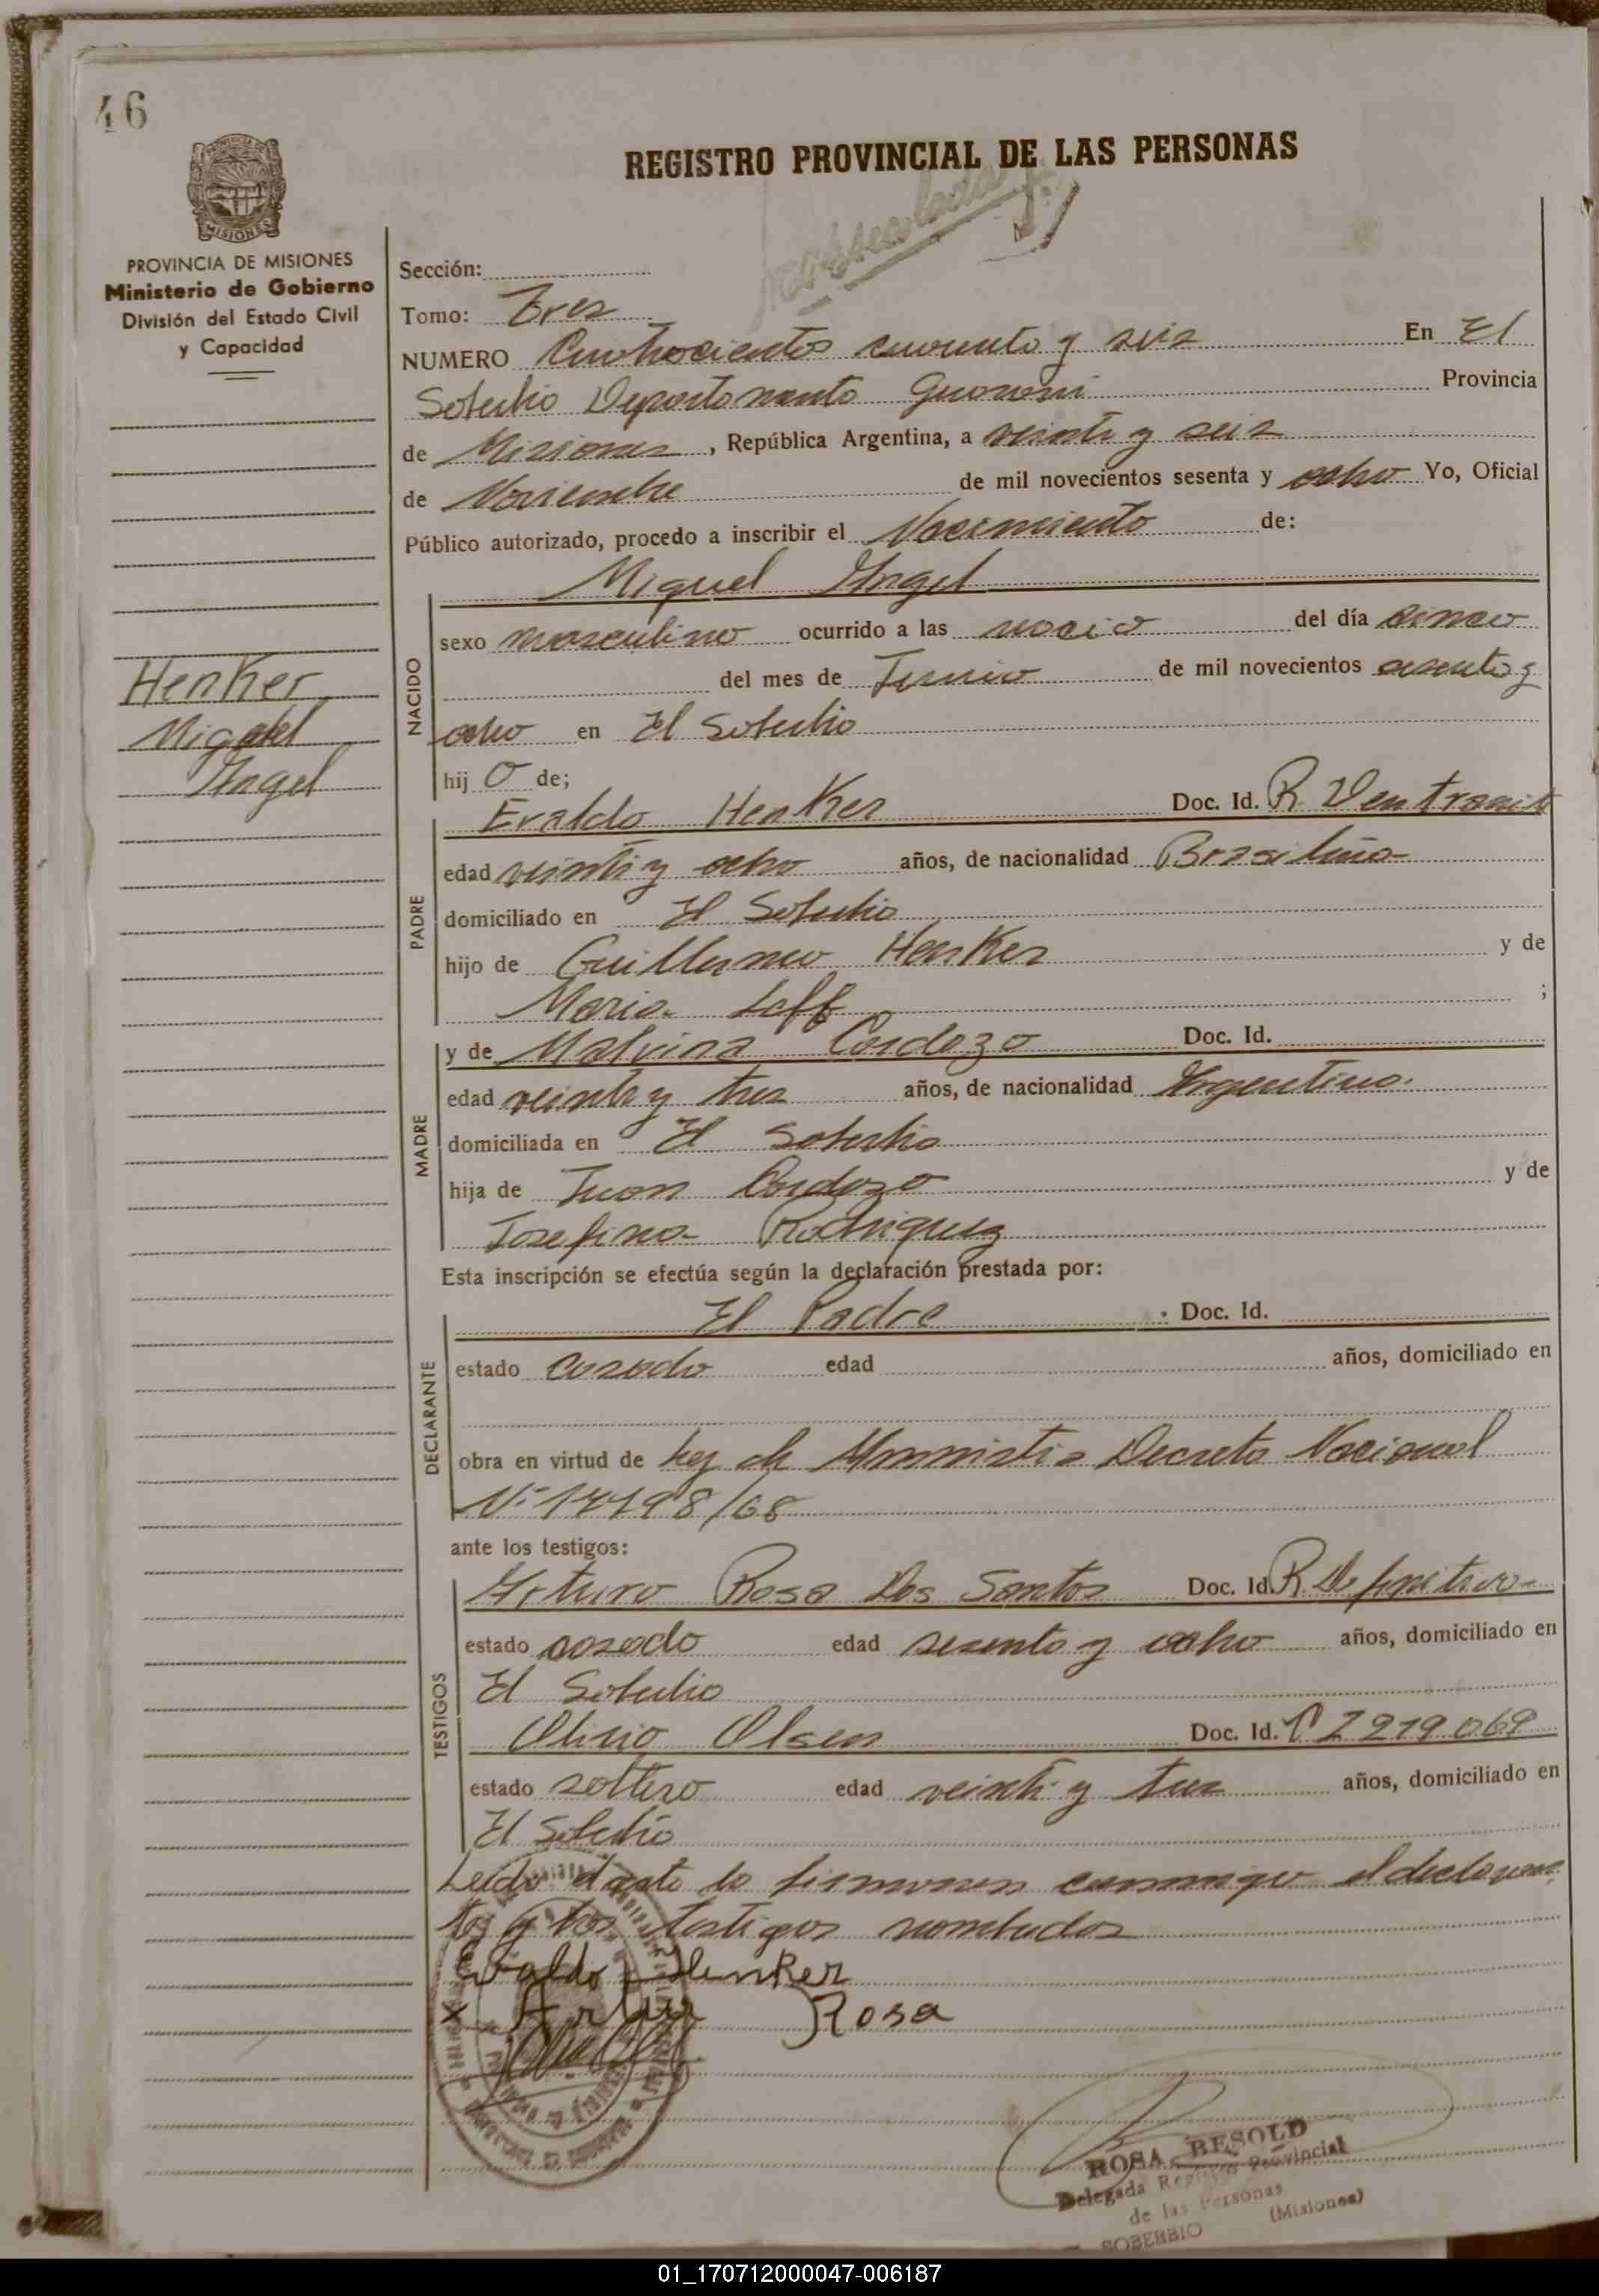 46
MISIONES
PROVINCIA DE MISIONES
Ministerio de Gobierno
División del Estado Civil
y Capacidad
Henker
Miguel
Angel
REGISTRO PROVINCIAL DE LAS PERSONAS
Sección:
Tomo: Tres
NUMERO Cuatrocientos cuarenta y seis En El
Soberbio Departamento Guarani Provincia
de Misiones, República Argentina, a veinte y seis
de Noviembre de mil novecientos sesenta y ocho Yo, Oficial
Público autorizado, procedo a inscribir el Nacimiento de:
Miguel Angel
NACIDO
sexo masculino ocurrido a las del día cinco
del mes de Junio de mil novecientos sesenta y
ocho en El Soberbio
hijo de;
PADRE
Evaldo Henker Doc. Id. R. Ven transit
edad veinte y ocho años, de nacionalidad Brasileña
domiciliado en El Soberbio
hijo de Guillermo Henker y de
Maria ;
MADRE
y de Malvina Cardozo Doc. Id.
edad veinte y tres años, de nacionalidad Argentina.
domiciliada en El Soberbio
hija de Juan Cardozo y de
Josefina Rodriguez
Esta inscripción se efectúa según la declaración prestada por:
DECLARANTE
El Padre . Doc. Id.
estado casado edad años, domiciliado en
obra en virtud de Ley de Amnistia Decreto Nacional
Nº /68
ante los testigos:
TESTIGOS
Arturo Rosa Dos Santos Doc. Id. R. Definitivo
estado casado edad sesenta y ocho años, domiciliado en
El Soberbio
Olirio Olsen Doc. Id. C I 219.069
estado soltero edad veinte y tres años, domiciliado en
El Soberbio
Leida el acta la firmaron conmigo el declaran
te y los testigos nombrados
Evaldo Henker
x Artur Rosa
ROSA BESOLD
Delegada Registro Provincial
de las Personas
SOBERBIO (Misiones)
01_170712000047-006187